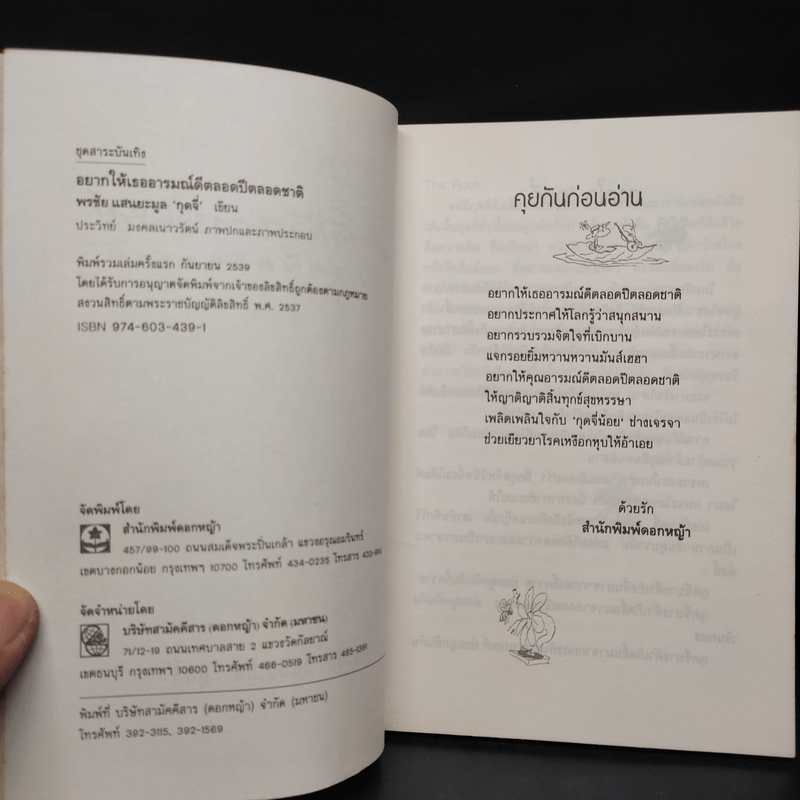 ชุดสาระบันเทิง
อยากให้เธออารมณ์ดีตลอดปีตลอดชาติ
พรชัย แสนยะมูล 'กุดจี่' เขียน
ประวิทย์ มงคลเนาวรัตน์ ภาพปกและภาพประกอบ
พิมพ์รวมเล่มครั้งแรก กันยายน 2539
โดยได้รับการอนุญาตจัดพิมพ์จากเจ้าของลิขสิทธิ์ถูกต้องตามกฎหมาย
สงวนสิทธิ์ตามพระราชบัญญัติลิขสิทธิ์ พ.ศ. 2537
ISBN 974-603-439-1
จัดพิมพ์โดย
สำนักพิมพ์ดอกหญ้า
457/99-100 ถนนสมเด็จพระปิ่นเกล้า แขวงอรุณอมรินทร์
เขตบางกอกน้อย กรุงเทพฯ 10700 โทรศัพท์ 434-0235 โทรสาร
จัดจำหน่ายโดย
บริษัทสามัคคีสาร (ดอกหญ้า) จำกัด (มหาชน)
71/12-19 ถนนเทศบาลสาย 2 แขวงวัดกัลยาณ์
เขตธนบุรี กรุงเทพฯ 10600 โทรศัพท์ 466-0519 โทรสาร 465-1391
พิมพ์ที่ บริษัทสามัคคีสาร (ดอกหญ้า) จำกัด (มหาชน)
โทรศัพท์ 392-3115, 392-1569
คุยกันก่อนอ่าน
อยากให้เธออารมณ์ดีตลอดปีตลอดชาติ
อยากประกาศให้โลกรู้ว่าสนุกสนาน
อยากรวบรวมจิตใจที่เบิกบาน
แจกรอยยิ้มหวานหวานมันส์เฮฮา
อยากให้คุณอารมณ์ดีตลอดปีตลอดชาติ
ให้ญาติญาติสิ้นทุกข์สุขหรรษา
เพลิดเพลินใจกับ 'กุดจี่น้อย' ช่างเจรจา
ช่วยเยียวยาโรคเหงือกหุบให้อ้าเอย
ด้วยรัก
สำนักพิมพ์ดอกหญ้า